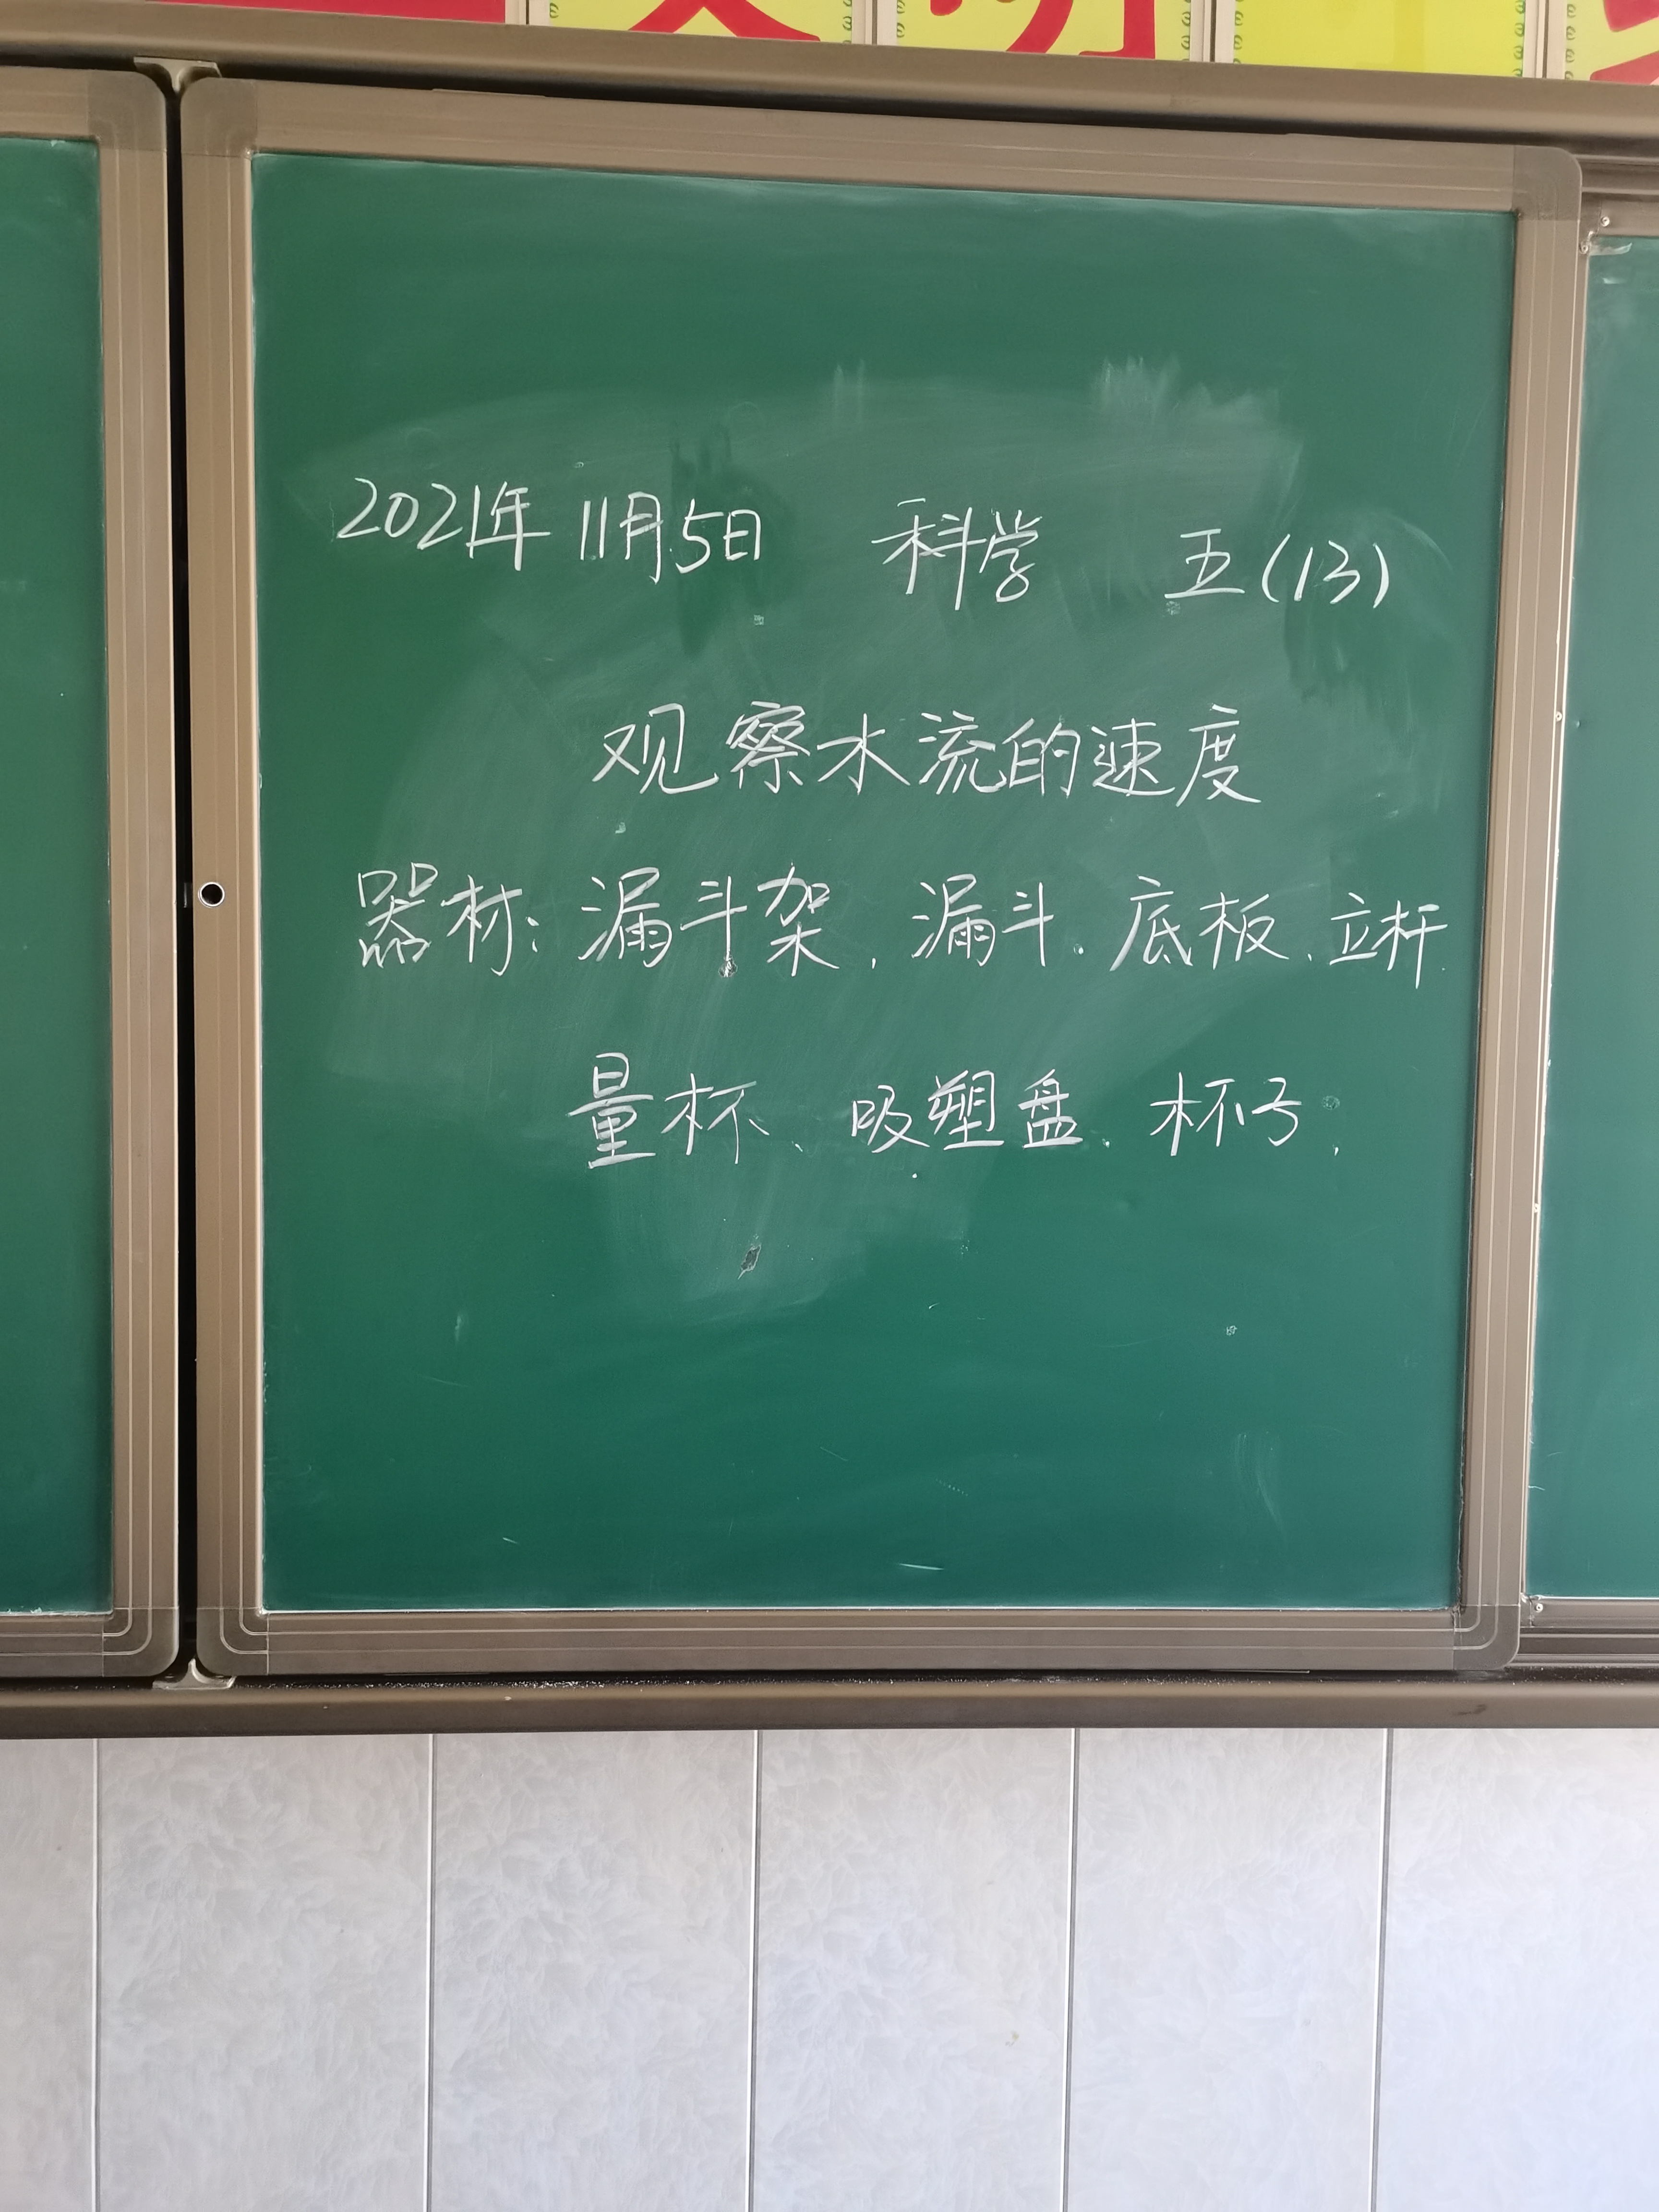 2021年11月5日 科学 五(13)
观察水流的速度
器材:漏斗架、漏斗、底板、立杆
量杯、吸塑盘、杯子、